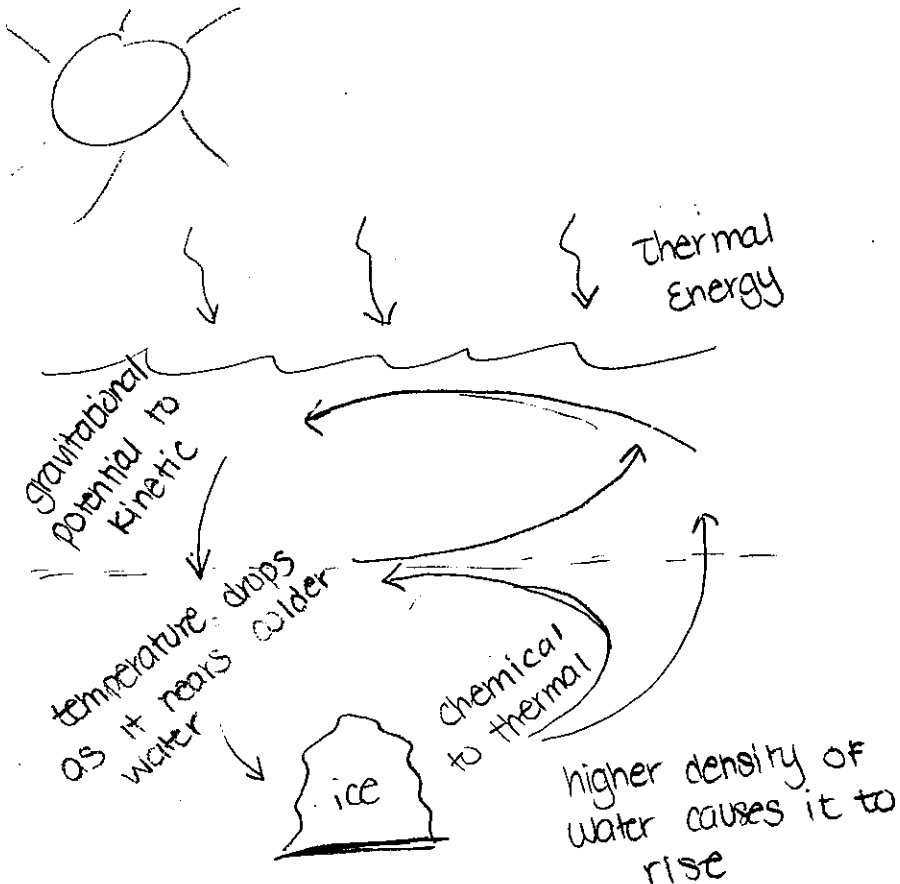 Thermal
Energy
gravitational
potential to
kinetic
temperature drops
as it nears colder
water
chemical
to thermal
ice
higher density of
water causes it to
rise